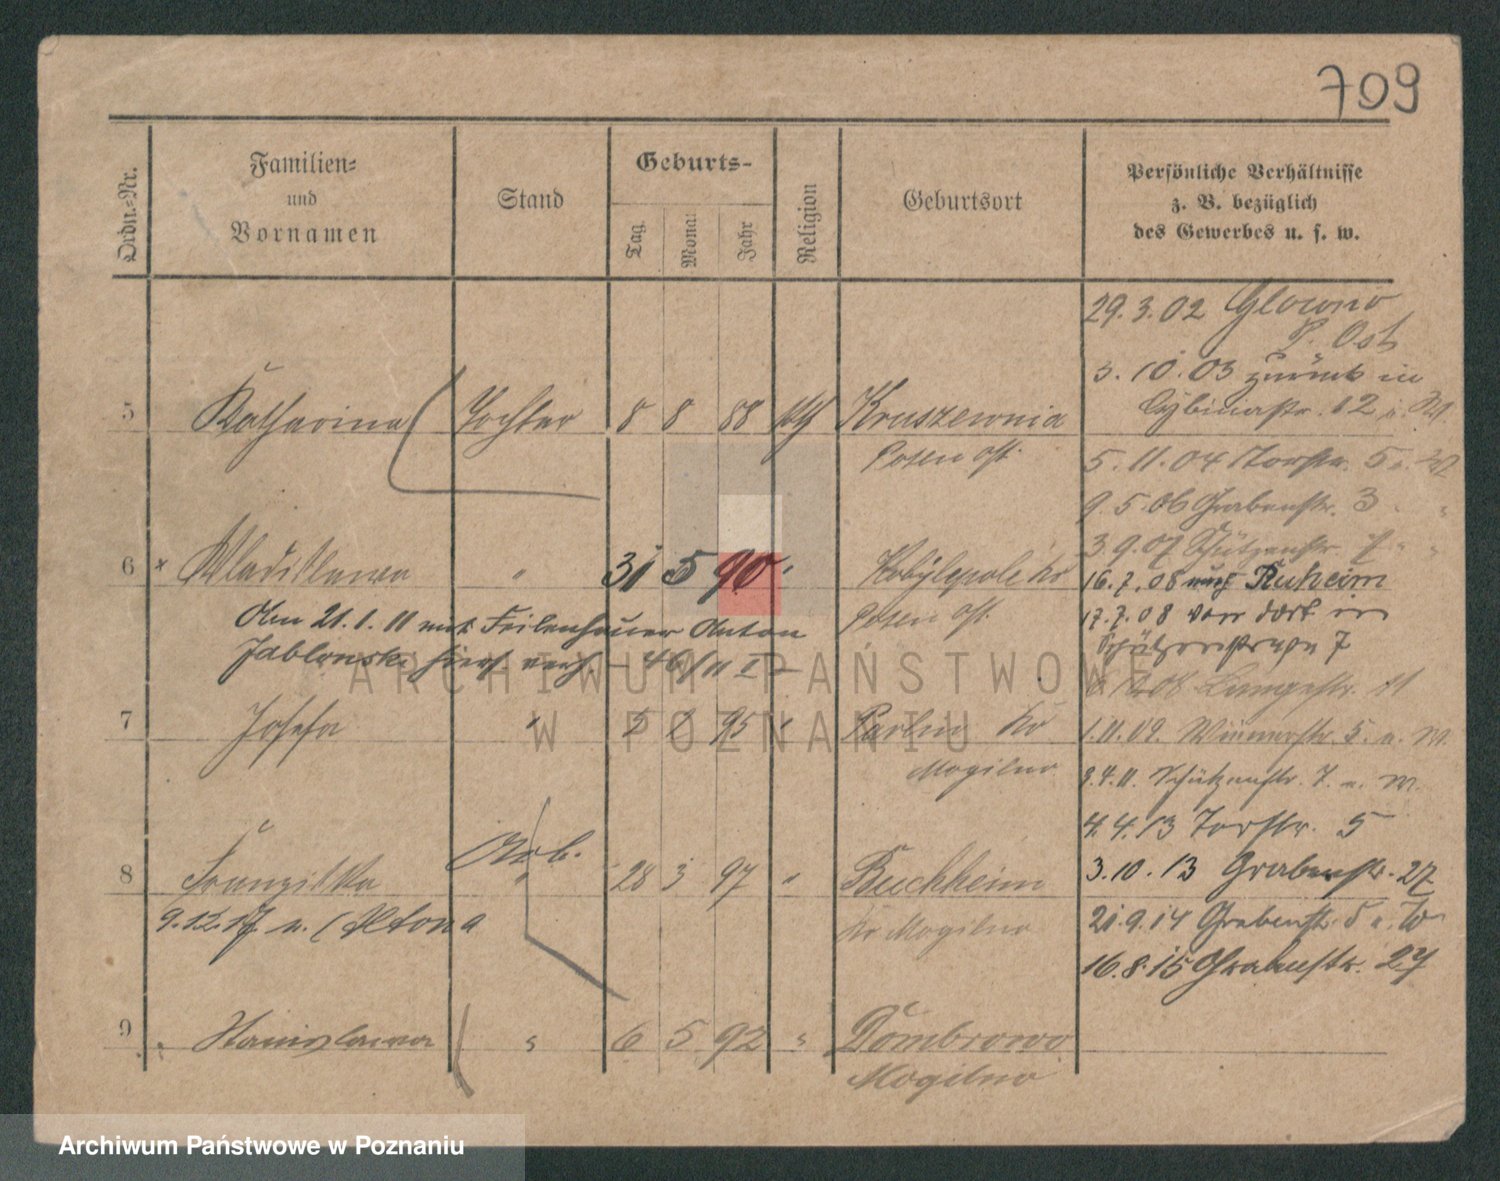 709
Ordn.-Nr.
Familien-
und
Vornamen
Stand
Geburts-
Tag
Monat
Jahr
Religion
Geburtsort
Persönliche Verhältnisse
z. B. bezüglich
des Gewerbes u. s. w.
29.3.02 Glowno
P. Ost
3.10.03 zurück in
Cybinastr. 12
5 Katharina Tochter 8 8 88 kth Kruszewnia
Posen Ost
5.11.04 Torstr. 5
9.5.06 Grabenstr. 3
3.9.07 Schützenstr. 7
6 Wladislawa " 31 5 90 " Kobylepole Kr
Posen Ost
16.7.08 nach Ruheim
17.7.08 von dort in
Schützenstrasse 7
Am 21.1.11 mit Feilenhauer Anton
Jablonski hier verh. 46/11 I
08 Langestr. 11
7 Josefa " 95 " Parlin Kr
Mogilno
1.11.09. Wienerstr. 5. u. W.
3.4.11. Schützenstr. 7. u. W.
4.4.13 Torstr. 5
8 Franziska Arb. " 28 3 97 " Buchheim
Kr Mogilno
3.10.13 Grabenstr. 27
9.12.17 n. Altona
21.9.14 Grabenstr. 5 u. W
16.8.15 Grabenstr. 27
9 Stanislawa " 6 5 92 " Dombrowo
Mogilno
ARCHIWUM PAŃSTWOWE
W POZNANIU
Archiwum Państwowe w Poznaniu